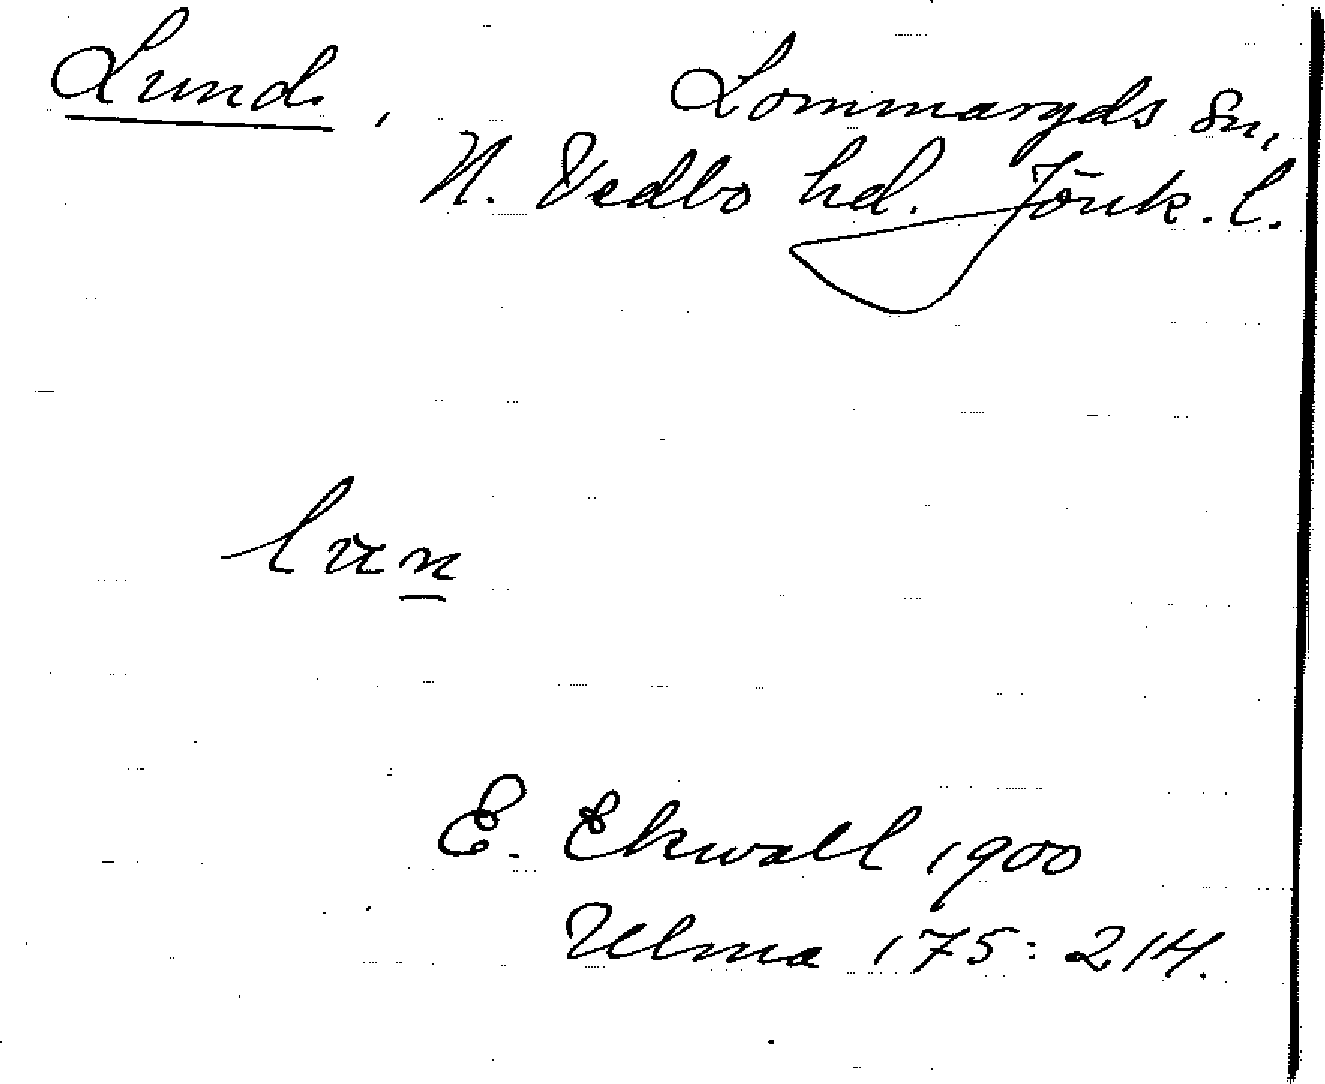 Lund, Lommaryds sn,
N. Vedbo hd. Jönk. l.
lun
E. Ekwall 1900
Ulma 175: 214.